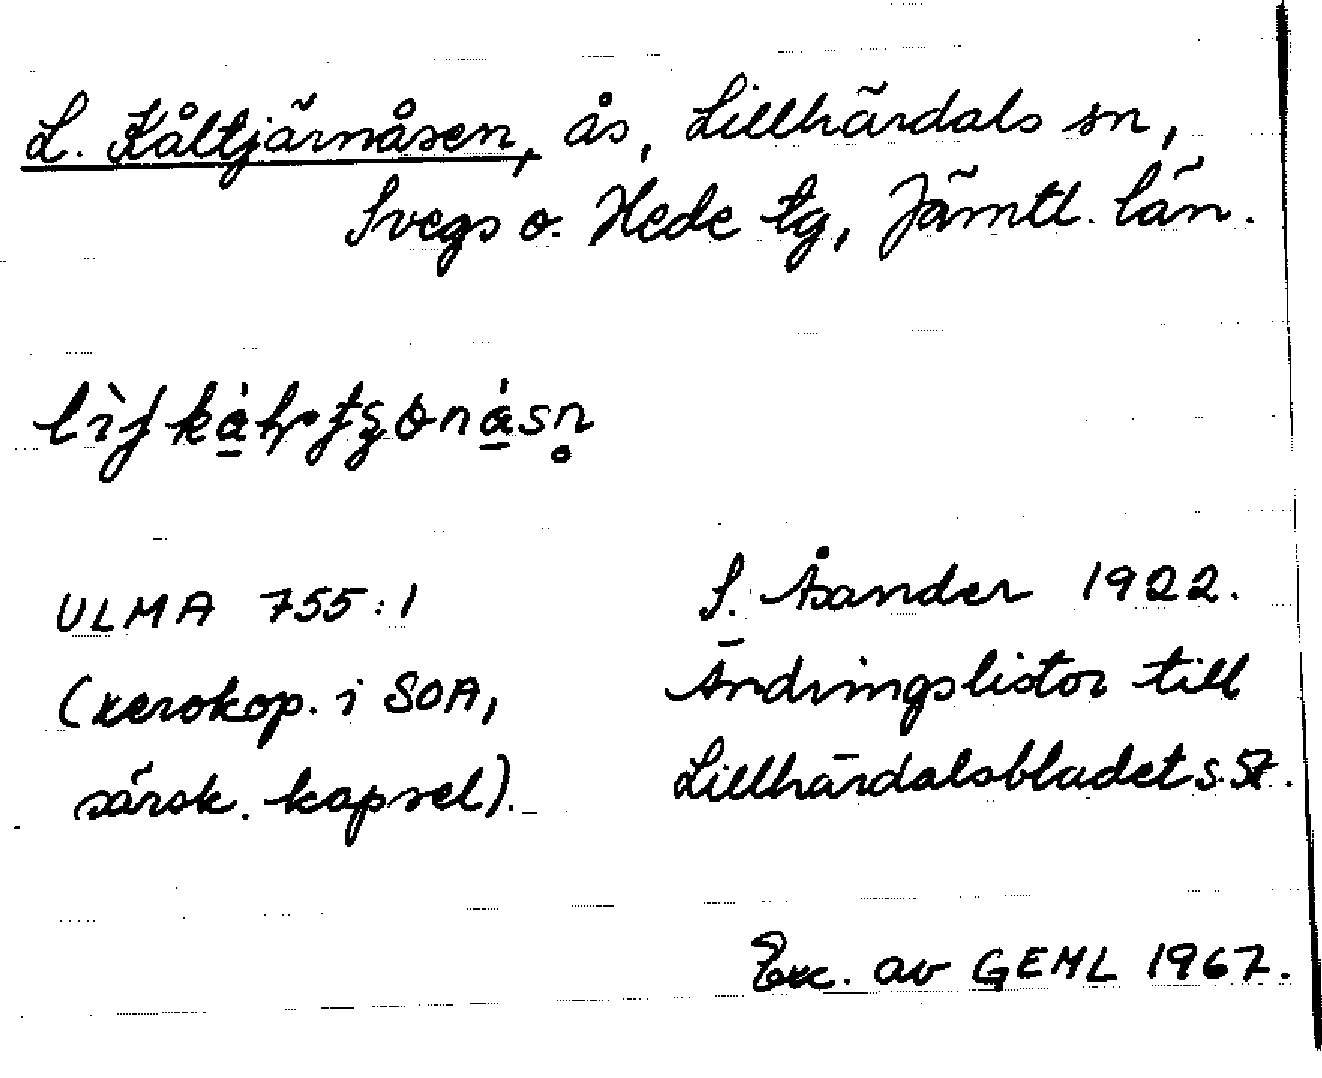 L. Kåltjärnåsen, ås, Lillhärdals sn,
Svegs o. Hede tg, Jämtl. län.
ULMA 755:1
S. Åsander 1922.
(xerokop. i SOA,
Ändringslistor till
särsk. kapsel).
Lillhärdalsbladet s. 57.
Exc. av GEML 1967.